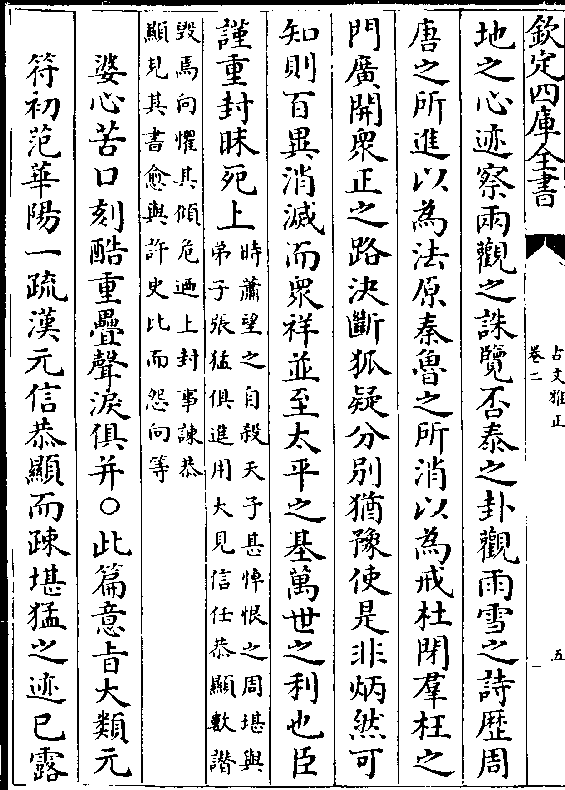 欽定四庫全書
古文雅正
卷二
五
地之心迹察兩觀之誅覽否泰之卦觀雨雪之詩歴周
唐之所進以為法原秦魯之所消以為戒杜閉羣枉之
門廣開衆正之路決斷狐疑分别猶豫使是非炳然可
知則百異消滅而衆祥並至太平之基萬世之利也臣
謹重封昧死上
時蕭望之自殺天子甚悼恨之周堪與
弟子張猛俱進用大見信任恭顯數譛
毁焉向懼其傾危廼上封事諌恭
顯見其書愈與許史比而怨向等
婆心苦口刻酷重疊聲淚俱并○此篇意㫖大類元
符初范華陽一疏漢元信恭顯而疎堪猛之迹已露